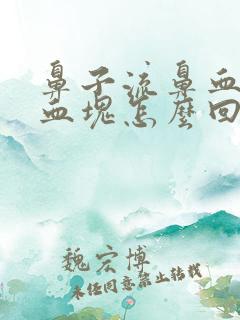 鼻子流鼻血
血块怎么回
魏宏博
未经同意禁止转载